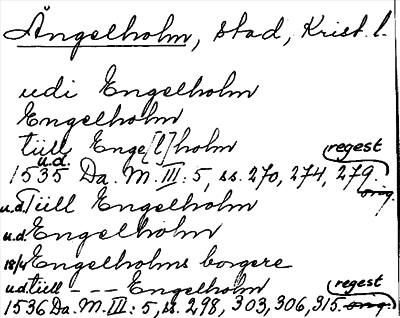 Ängelholm, stad, Krist. l.
udi Engelholm
Engelholm
tüll Enge[l]holm
u.d. regest
1535 Da. M. III: 5, ss. 270, 274, 279. orig.
u.d. Tüll Engelholm
u.d. Engelholm
18/4 Engelholms borgere
u.d. tüll - - - Engelholm regest
1536 Da. M. III: 5, ss. 298, 303, 306, 315. orig.